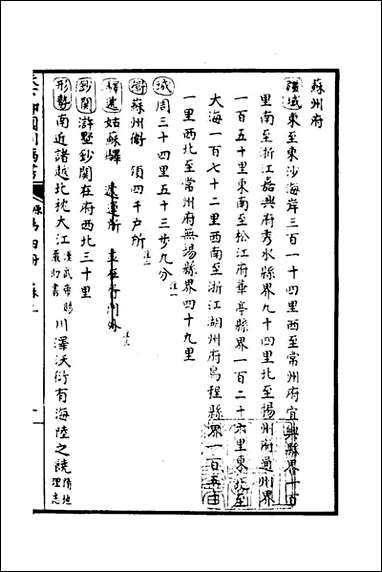 蘇州府
疆域東至東沙海岸三百一十四里西至常州府宜興縣界十百
里南至浙江嘉興府秀水縣界九十四里北至揚州府通州界
一百五十里東南至松江府華亭縣界一百二十六里東北至
大海一百七十二里西南至浙江湖州府烏程縣界一百五十
一里西北至常州府無錫縣界四十九里
城周三十四里五十三步九分注一
衛蘇州衛 須四千戶所注二
驛遞姑蘇驛 遞運所 注三
鈔關滸墅鈔關在府西北三十里
形勢南近諸越北枕大江漢武帝賜嚴助書川澤沃衍有海陸之饒隋地理志